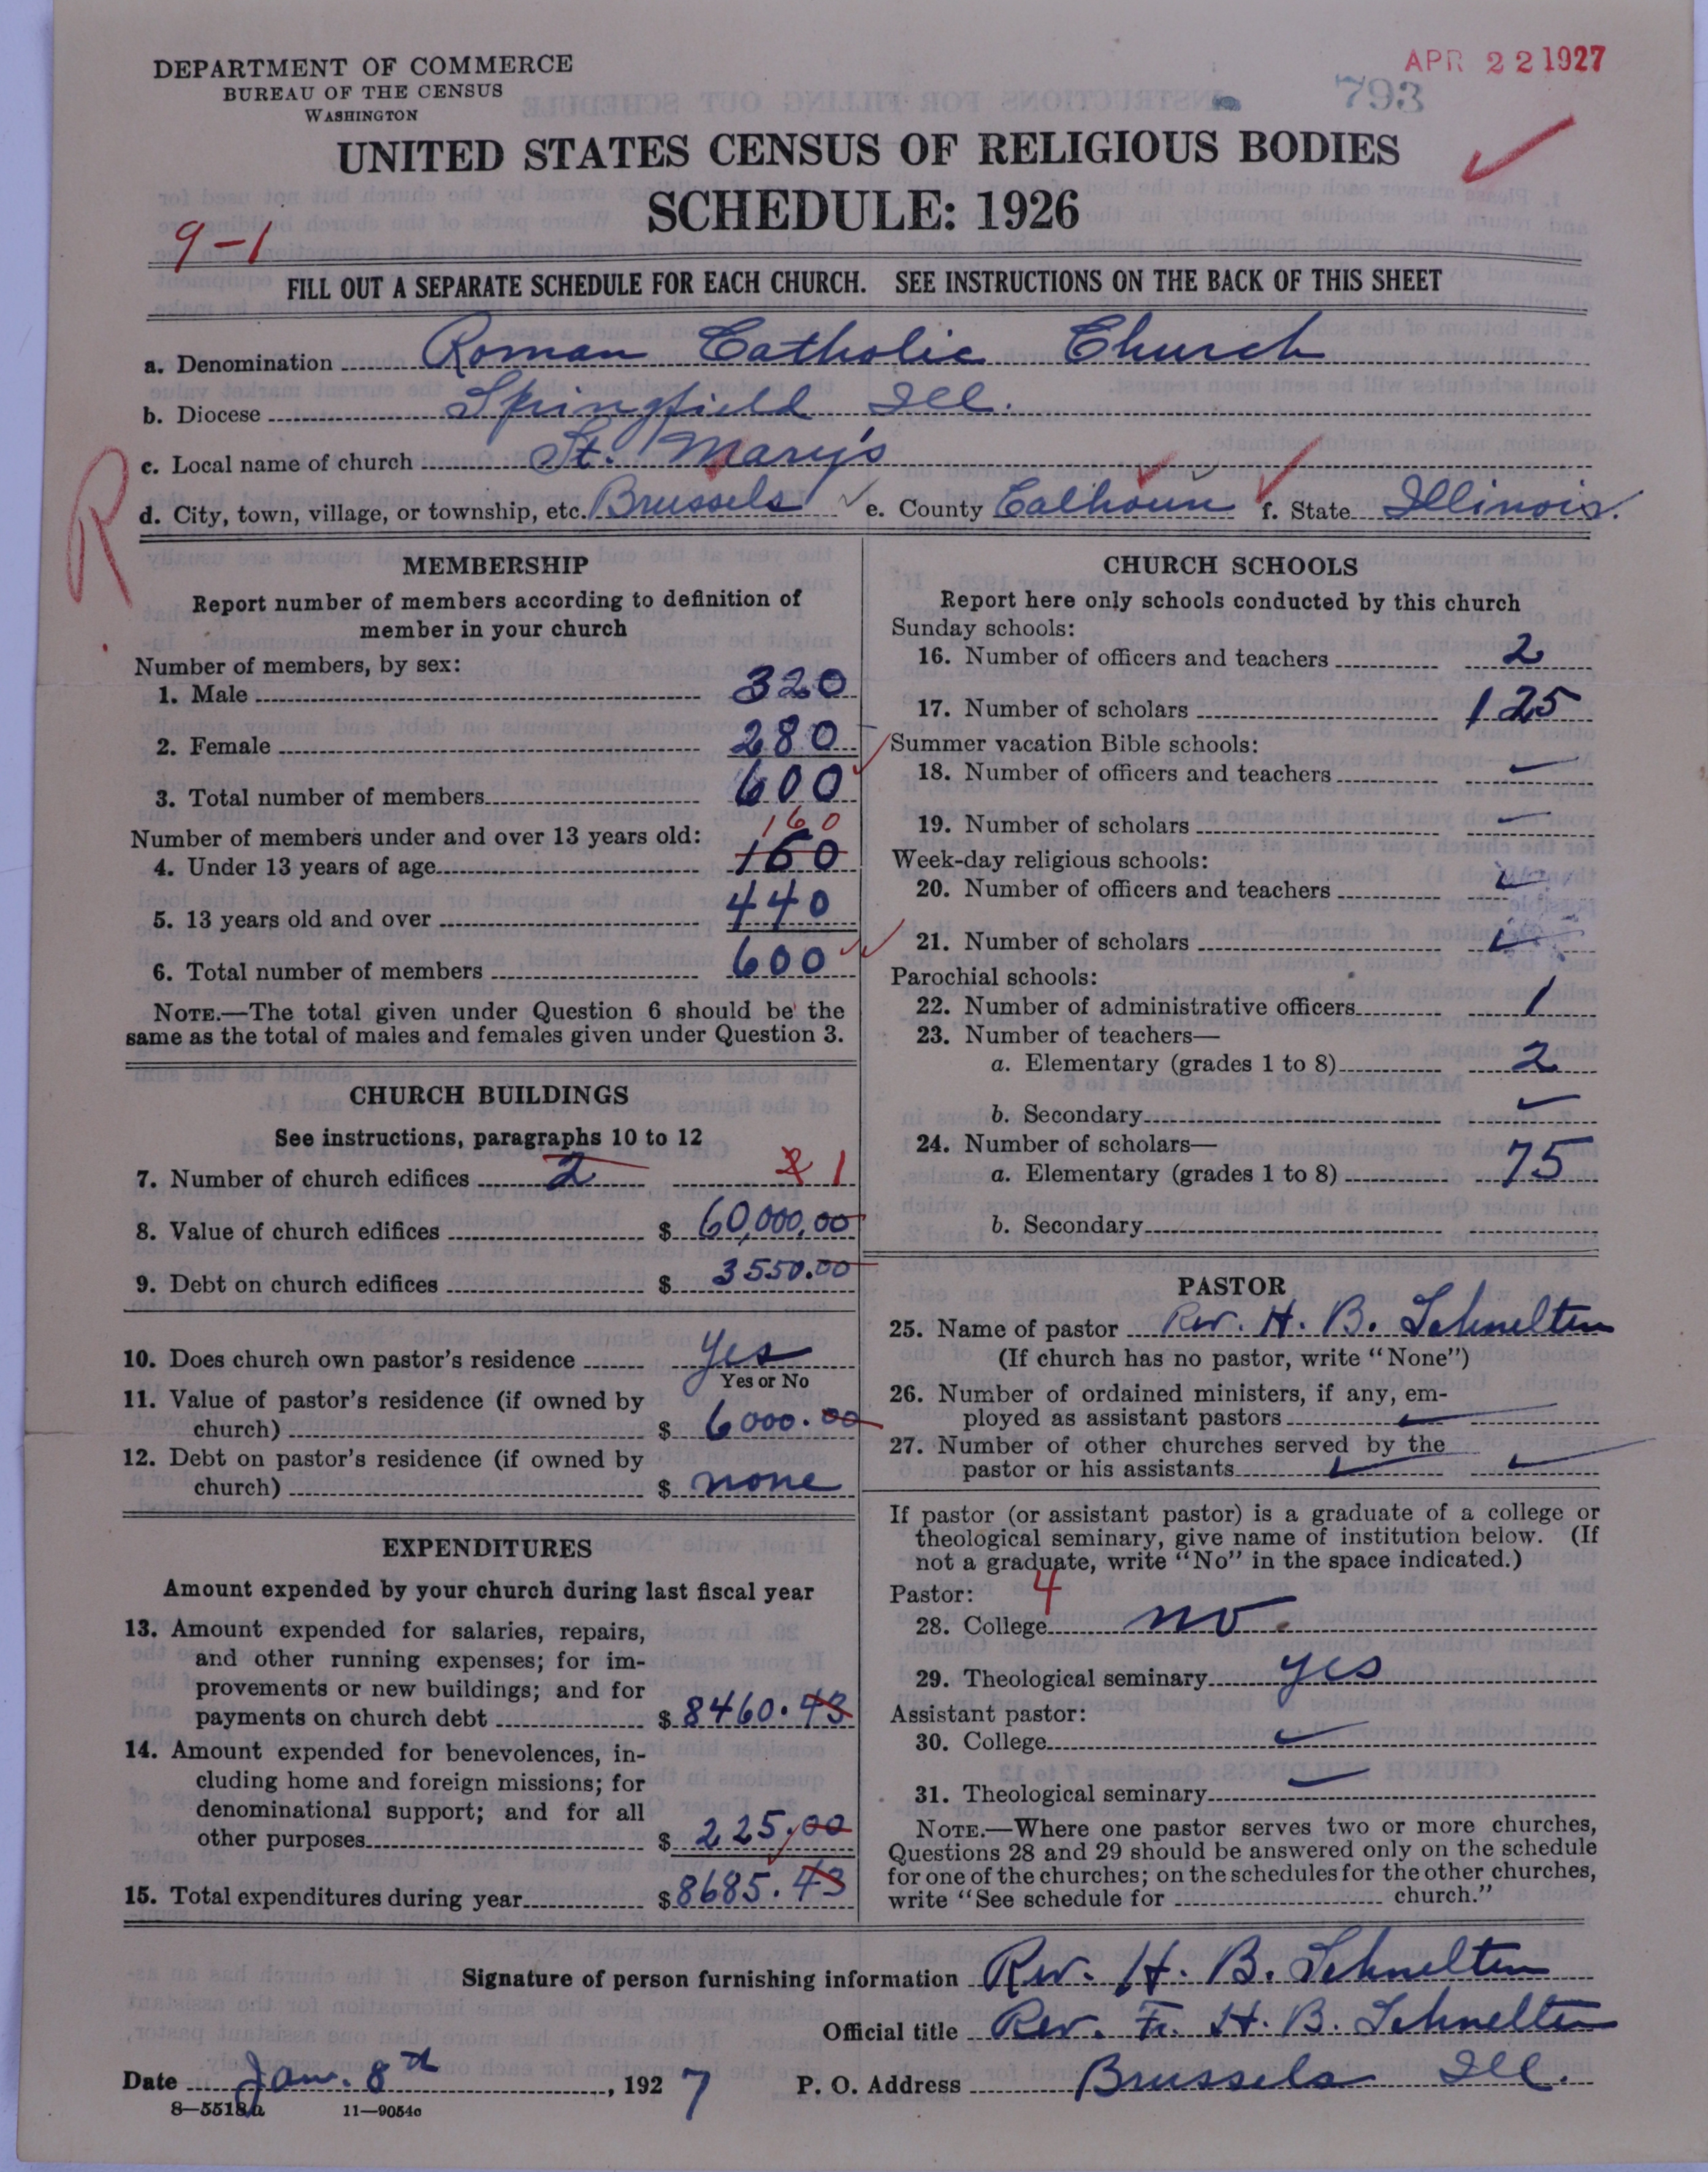 DEPARTMENT OF COMMERCE
BUREAU OF THE CENSUS
WASHINGTON
APR 22 1927
793
UNITED STATES CENSUS OF RELIGIOUS BODIES
SCHEDULE: 1926
9-1
FILL OUT A SEPARATE SCHEDULE FOR EACH CHURCH. SEE INSTRUCTIONS ON THE BACK OF THIS SHEET
a. Denomination Roman Catholic Church
b. Diocese Springfield Ill.
c. Local name of church St. Mary's
d. City, town, village, or township, etc. Brussels e. County Calhoun f. State Illinois.
R
MEMBERSHIP
Report number of members according to definition of
member in your church
Number of members, by sex:
1. Male 320
2. Female 280
3. Total number of members 600
Number of members under and over 13 years old:
160
4. Under 13 years of age 160
5. 13 years old and over 440
6. Total number of members 600
NOTE.—The total given under Question 6 should be the
same as the total of males and females given under Question 3.
CHURCH BUILDINGS
See instructions, paragraphs 10 to 12
7. Number of church edifices 2 2 1
8. Value of church edifices $ 60,000.00
9. Debt on church edifices $ 3550.00
10. Does church own pastor's residence Yes
Yes or No
11. Value of pastor's residence (if owned by
church) $ 6000.00
12. Debt on pastor's residence (if owned by
church) $ none
EXPENDITURES
Amount expended by your church during last fiscal year
13. Amount expended for salaries, repairs,
and other running expenses; for im-
provements or new buildings; and for
payments on church debt $ 8460.43
14. Amount expended for benevolences, in-
cluding home and foreign missions; for
denominational support; and for all
other purposes $ 225.00
15. Total expenditures during year $ 8685.43
CHURCH SCHOOLS
Report here only schools conducted by this church
Sunday schools:
16. Number of officers and teachers 2
17. Number of scholars 125
Summer vacation Bible schools:
18. Number of officers and teachers
19. Number of scholars
Week-day religious schools:
20. Number of officers and teachers
21. Number of scholars
Parochial schools:
22. Number of administrative officers 1
23. Number of teachers—
a. Elementary (grades 1 to 8) 2
b. Secondary
24. Number of scholars—
a. Elementary (grades 1 to 8) 75
b. Secondary
PASTOR
25. Name of pastor Rev. H. B. Schnelten
(If church has no pastor, write "None")
26. Number of ordained ministers, if any, em-
ployed as assistant pastors
27. Number of other churches served by the
pastor or his assistants
If pastor (or assistant pastor) is a graduate of a college or
theological seminary, give name of institution below. (If
not a graduate, write "No" in the space indicated.)
Pastor: 4
28. College no
29. Theological seminary yes
Assistant pastor:
30. College
31. Theological seminary
NOTE.—Where one pastor serves two or more churches,
Questions 28 and 29 should be answered only on the schedule
for one of the churches; on the schedules for the other churches,
write "See schedule for church."
Signature of person furnishing information Rev. H. B. Schnelten
Official title Rev. Fr. H. B. Schnelten
Date Jan. 8th, 1927 P. O. Address Brussels Ill.
8—5518a 11—9054c